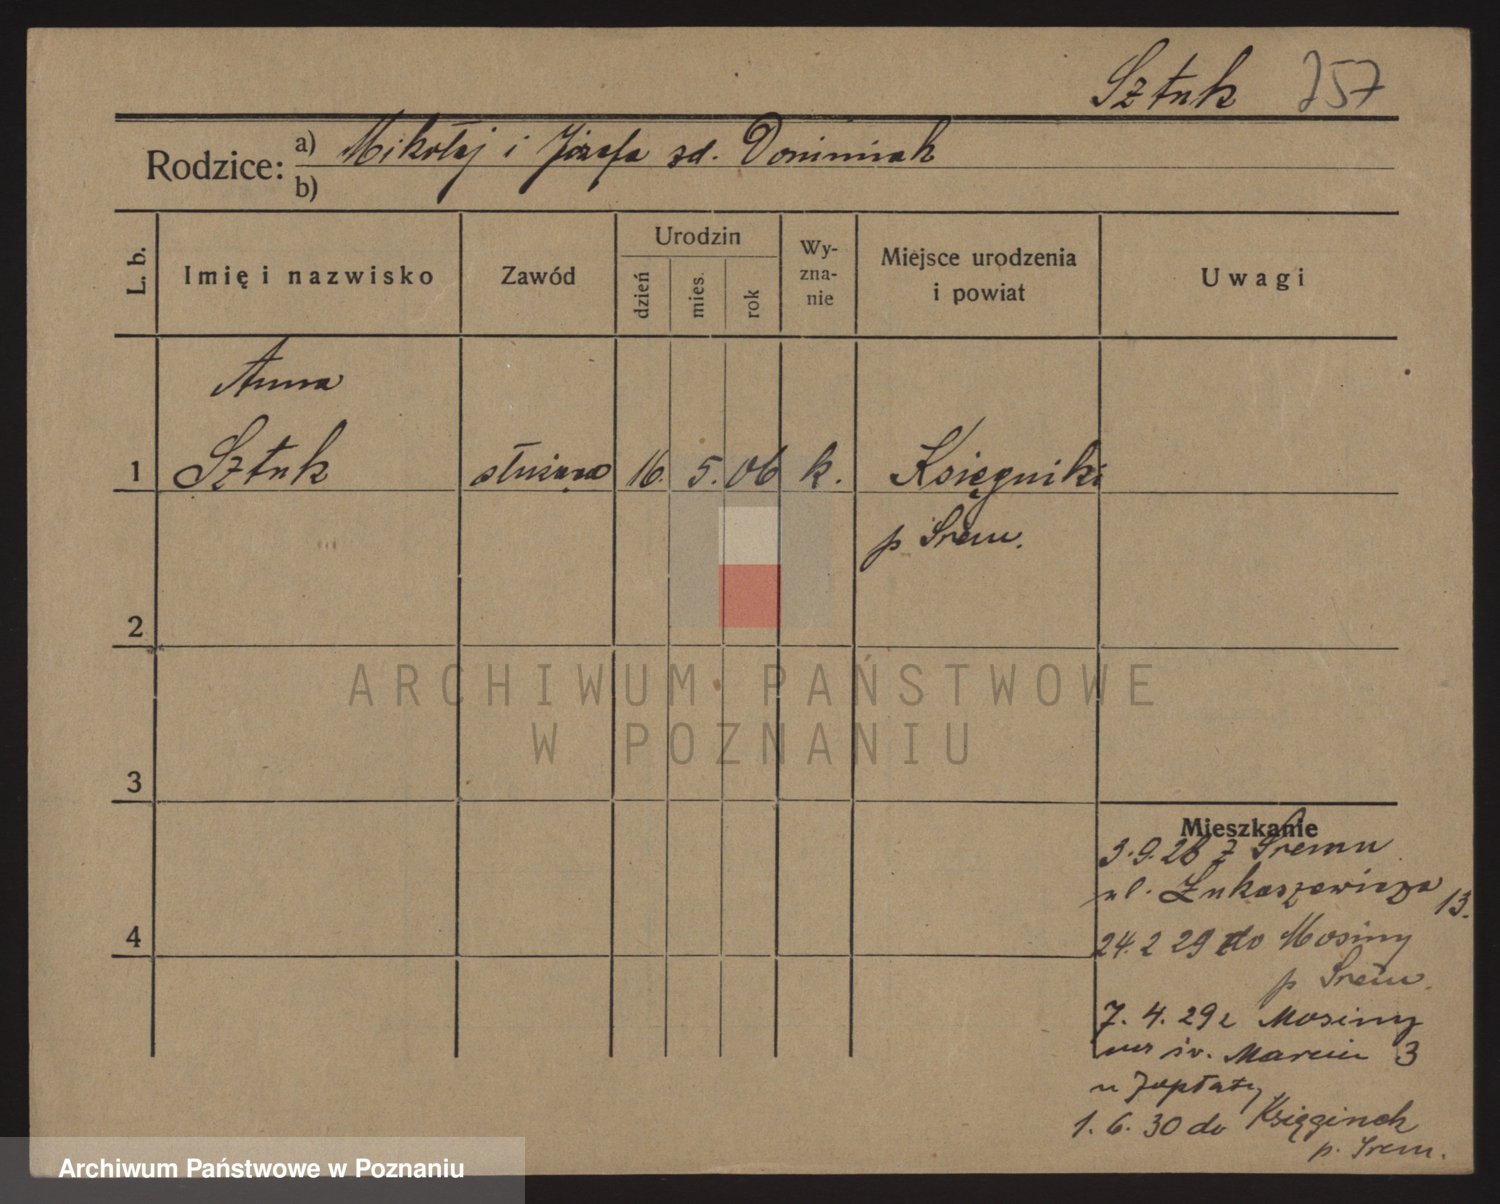 Sztuk 757
Rodzice: a) Mikołaj i Józefa zd. Dominiak
b)
L. b. Imię i nazwisko Zawód Urodzin dzień mies. rok Wy-zna-nie Miejsce urodzenia i powiat Uwagi
Anna
1 Sztuk służąca 16. 5. 06 k. Księgniki
p Śrem.
2
3
4
ARCHIWUM PAŃSTWOWE
W POZNANIU
Mieszkanie
3.9.28 z Śremu
ul. Łukaszewicza 13.
24.2 29 do Mosiny
p Śrem.
7. 4. 29 z Mosiny
św. Marcin 3
u Zapłaty
1. 6. 30 do Księginek
p. Śrem.
Archiwum Państwowe w Poznaniu